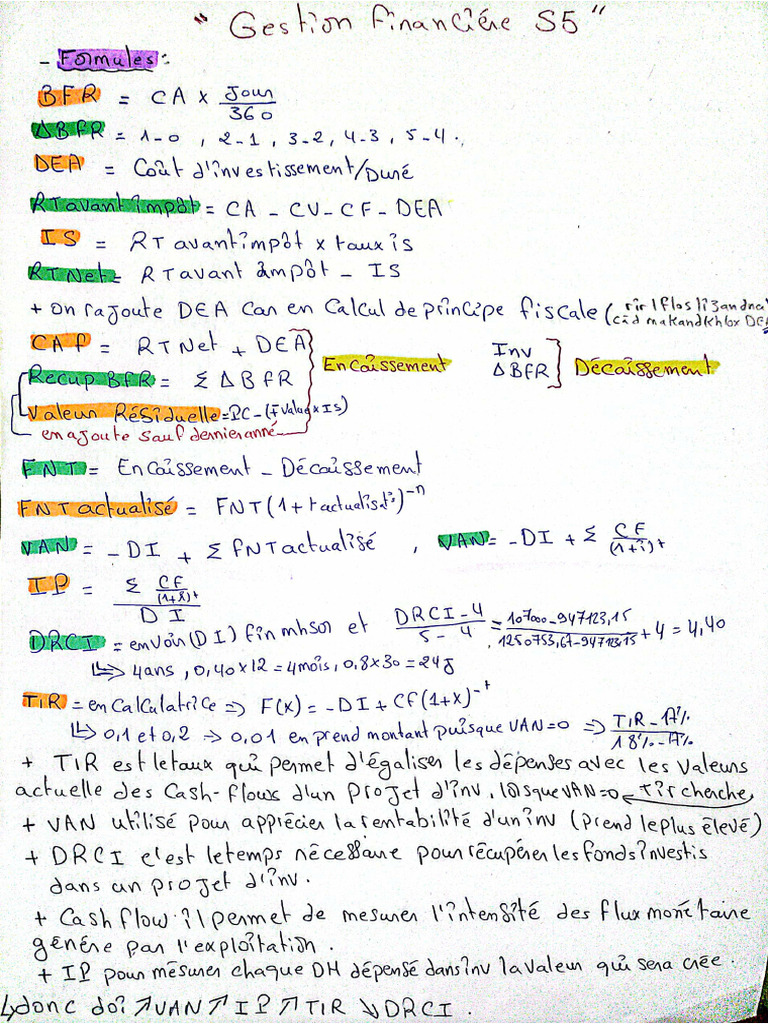 " Gestion financière S5 "
- Formules :
BFR = CA x Jour/360
ΔBFR = 1-0 , 2-1 , 3-2, 4-3, 5-4.
DEA = Coût d'investissement/Duré
RT avant impôt = CA - CV - CF - DEA
IS = RT avant impôt x taux is
RT Net = RT avant impôt - IS
+ on rajoute DEA car en Calcul de principe fiscale (
CAF = RT Net + DEA
Recup BFR = Σ ΔBFR
Encaissement
Inv
ΔBFR
Décaissement
Valeur Résiduelle =
en ajoute sauf dernier anné
FNT = Encaissement - Décaissement
FNT actualisé = FNT (1+ t actualisat°)^-n
VAN = -DI + Σ FNT actualisé , VAN = -DI + Σ CF/(1+i)^t
IP = Σ CF/(1+i)^t / DI
DRCI = en voir (DI) fin mhsor et DRCI-4/5-4 = 107000-947123,15/1250753,67-947123,15 + 4 = 4,40
↳ 4ans, 0,40 x 12 = 4mois, 0,8 x 30 = 24j
TIR = en Calculatrice => F(x) = -DI + CF(1+x)^-t
↳ 0,1 et 0,2 → 0,01 en prend montant puisque VAN=0 => TIR-17%/18%-17%
+ TIR est le taux qui permet d'égaliser les dépenses avec les valeurs
actuelle des Cash-flows d'un projet d'inv. losque VAN=0 ← TIR cherche
+ VAN utilisé pour apprécier la rentabilité d'un inv (prend le plus élevé)
+ DRCI c'est le temps nécessaire pour récupérer les fonds investis
dans un projet d'inv.
+ Cash flow : il permet de mesurer l'intensité des flux monétaire
génére par l'exploitation.
+ IP pour mésurer chaque DH dépensé dans inv la valeur qui sera crée.
↳ donc doi ↗VAN ↗IP ↗TIR ↘DRCI.